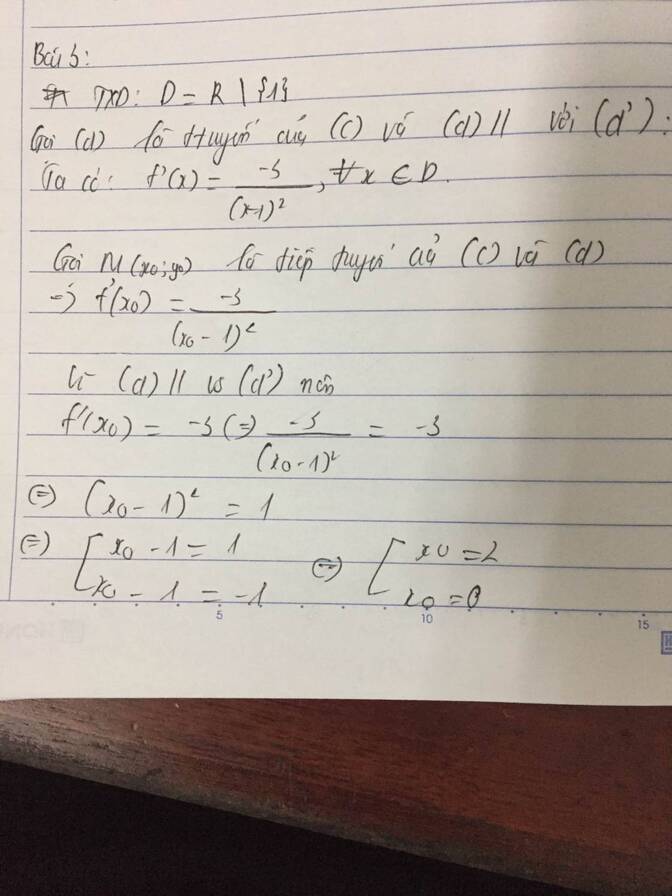 Bài 3:
TXD: D = R \ {1}
Gọi (d) là ttuyến của (C) và (d) // với (d'):
Ta có: f'(x) = -3/(x-1)², ∀x ∈ D.
Gọi M(x₀;y₀) là tiếp tuyến của (C) và (d)
=> f'(x₀) = -3/(x₀ - 1)²
Vì (d) // vs (d') nên
f'(x₀) = -3 (=) -3/(x₀-1)² = -3
(=) (x₀ - 1)² = 1
(=) [ x₀ - 1 = 1 (=) [ x₀ = 2
x₀ - 1 = -1 x₀ = 0
5 10 15